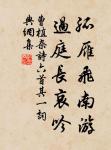 孤雁飛南游
過庭長哀吟
曹植雜詩六首其一詞
典綱集